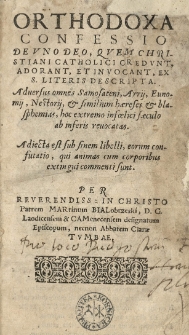 ORTHODOXA
CONFESSIO
DE VNO DEO, QVEM CHRI-
STIANI CATHOLICI CREDVNT,
ADORANT, ET INVOCANT, EX
S. LITERIS DESCRIPTA.
Aduersus omnes Samosateni, Arrij, Euno-
mij, Nestorij, & similium hæreses & bla-
sphemias, hoc extremo infœlici sæculo
ab inferis reuocatas.
Adiecta est sub finem libelli, eorum con-
futatio, qui animas cum corporibus
extingui commenti sunt.
PER
REVERENDISS: IN CHRISTO
Patrem MARtinum BIALobrzeskij, D. G.
Laodicensem & CAMenecensem designatum
Episcopum, necnon Abbatem Claræ
TVMBAE,